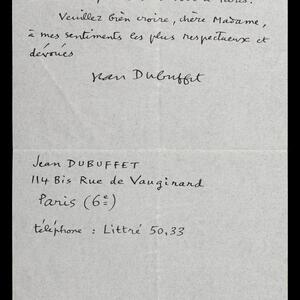 à Paris.
Veuillez bien croire, chère Madame,
à mes sentiments les plus respectueux et
dévoués
Jean Dubuffet
Jean DUBUFFET
114 Bis Rue de Vaugirard
Paris (6e)
téléphone : Littré 50,33